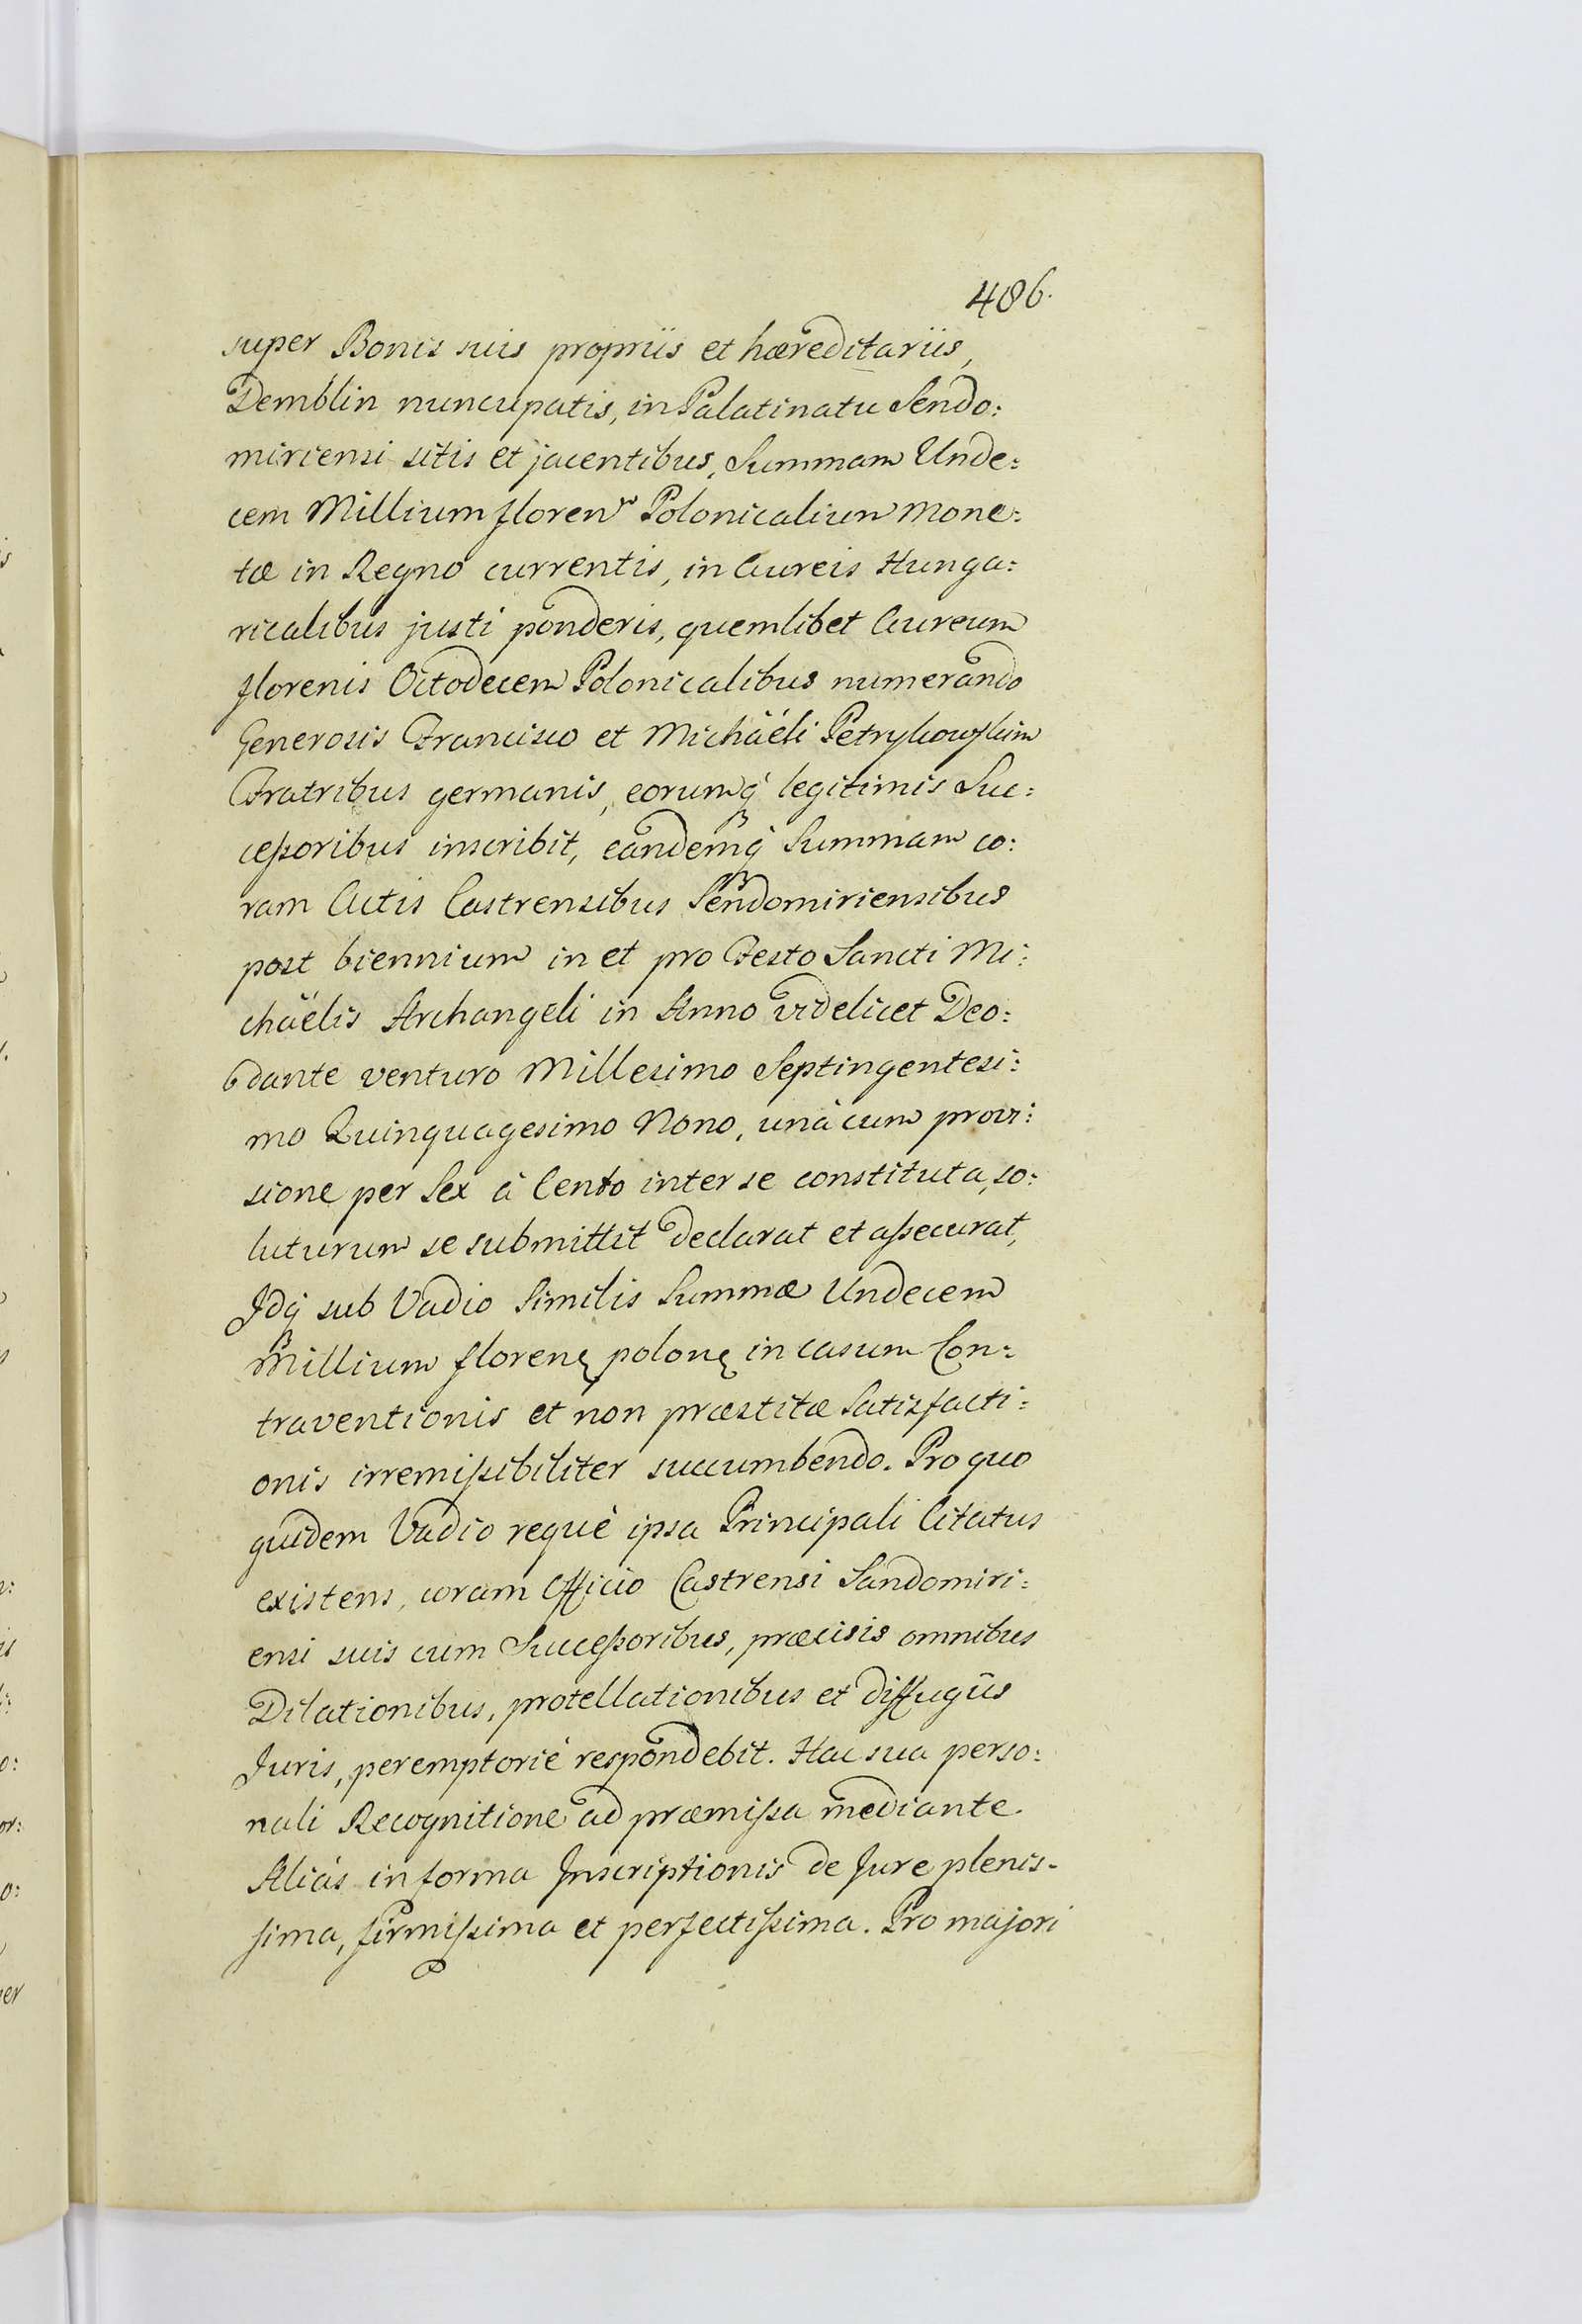 486.
super Bonis suis propriis et hæreditariis,
Demblin nuncupatis, in Palatinatu Sendo:
miriensi sitis et jacentibus, Summam Unde:
cem Millium floren Polonicalium Mone:
tæ in Regno currentis, in Aureis Hunga:
ricalibus justi ponderis, quemlibet Aureum
florenis Octodecem Polonicalibus numerando
Generosis Francisco et Michäéli Petrykowskim
Fratribus germanis, eorumq legitimis Suc:
ceßoribus inscribit, eandemq Summam co:
ram Actis Castrensibus Sendomiriensibus
post biennium in et pro Festo Sancti Mi:
chäelis Archangeli in Anno videlicet Deo:
dante venturo Millesimo Septingentesi:
mo Quinquagesimo Nono, unà cum provi:
sione per Sex à Cento inter se constituta, so:
luturum se submittit declarat et aßecurat,
Idq sub Vadio Similis Summæ Undecem
Millium floren polon in casum Con:
traventionis et non præstitæ Satisfacti:
onis irremißibiliter succumbendo. Pro quo
quidem Vadio requè ipsa Principali Citatus
existens, coram Officio Castrensi Sandomiri:
ensi suis cum Succeßoribus, præcisis omnibus
Dilationibus, protellationibus et diffugiis
Juris, peremptoriè respondebit. Hac sua perso:
nali Recognitione ad præmißa mediante.
Aliàs in forma Inscriptionis de Jure plenis-
sima, firmißima et perfectißima. Pro majori